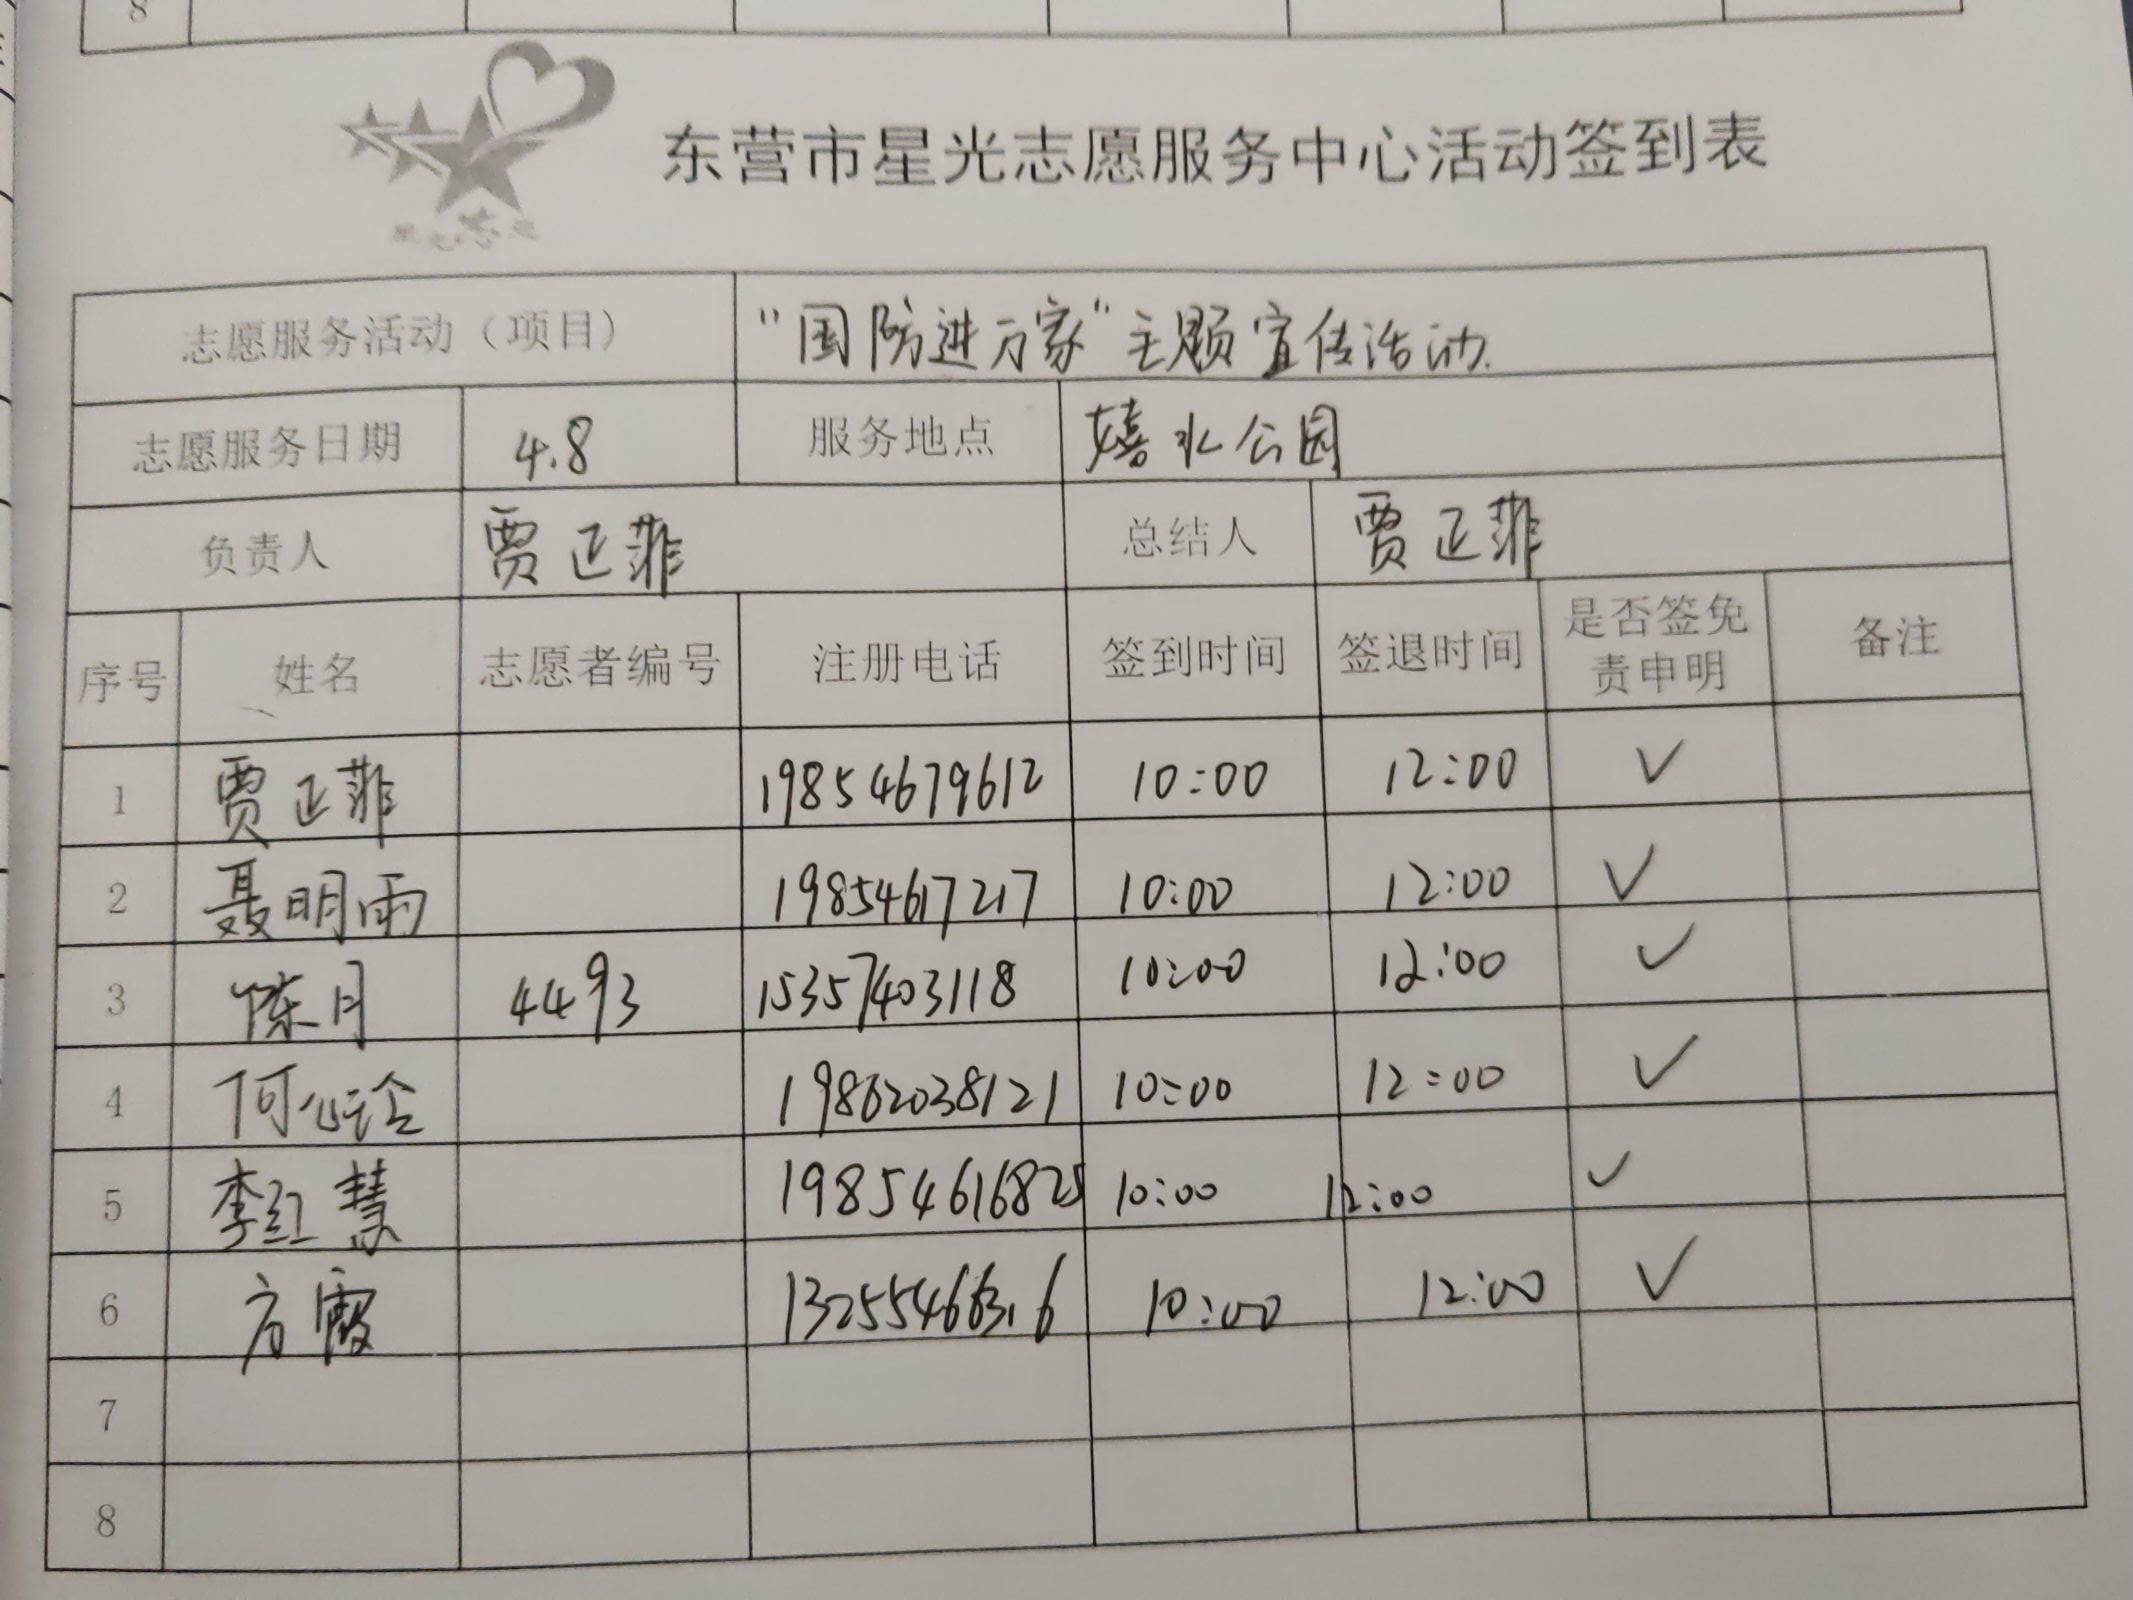 8
东营市星光志愿服务中心活动签到表
志愿服务活动（项目） “国防进万家”主题宣传活动.
志愿服务日期 4.8 服务地点 嬉水公园
负责人 贾正菲 总结人 贾正菲
序号 姓名 志愿者编号 注册电话 签到时间 签退时间 是否签免责申明 备注
1 贾正菲 19854679612 10:00 12:00 ✓
2 聂明雨 19854617217 10:00 12:00 ✓
3 陈月 4493 15357403118 10:00 12:00 ✓
4 19862038121 10:00 12:00 ✓
5 李红慧 19854616825 10:00 12:00 ✓
6 方霞 10:00 12:00 ✓
7
8